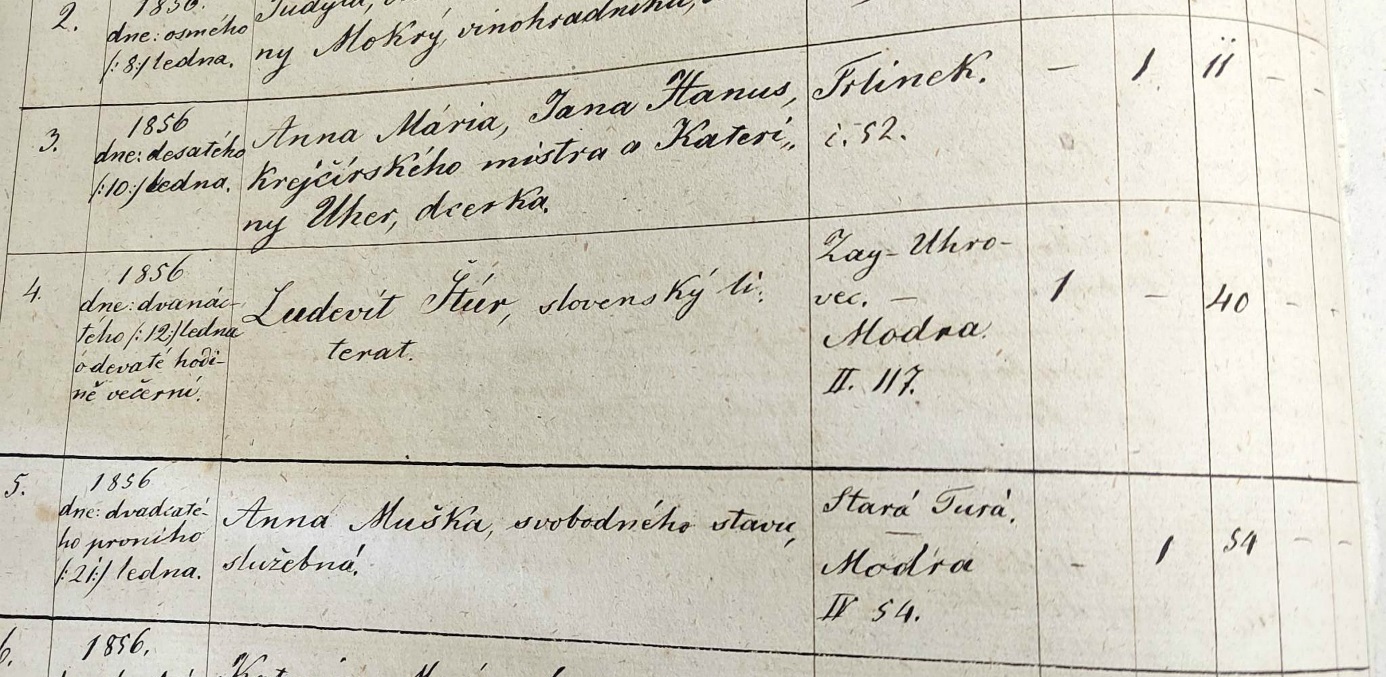 2.
1856.
dne: osmého
/:8:/ ledna.
ny Mokrý, vinohradníka,
3.
1856
dne: desatého
/:10:/ ledna.
Anna Mária, Jana Hanus,
krejčírského mistra a Kateri„
ny Uher, dcerka.
Trlinek.
č. 52.
— 1 11 –
4.
1856
dne: dvanác-
tého /:12:/ ledna
o devaté hodi-
ně večerní.
Ludevít Štúr, slovenský li:
terat.
Zay-Uhro-
vec. —
Modra.
II. 117.
1 – 40 –
5.
1856
dne: dvadcaté-
ho prvního
/:21:/ ledna.
Anna Muška, svobodného stavu,
služebná.
Stará Turá.
—
Modra
IV 54.
- 1 54 – –
6.
1856.